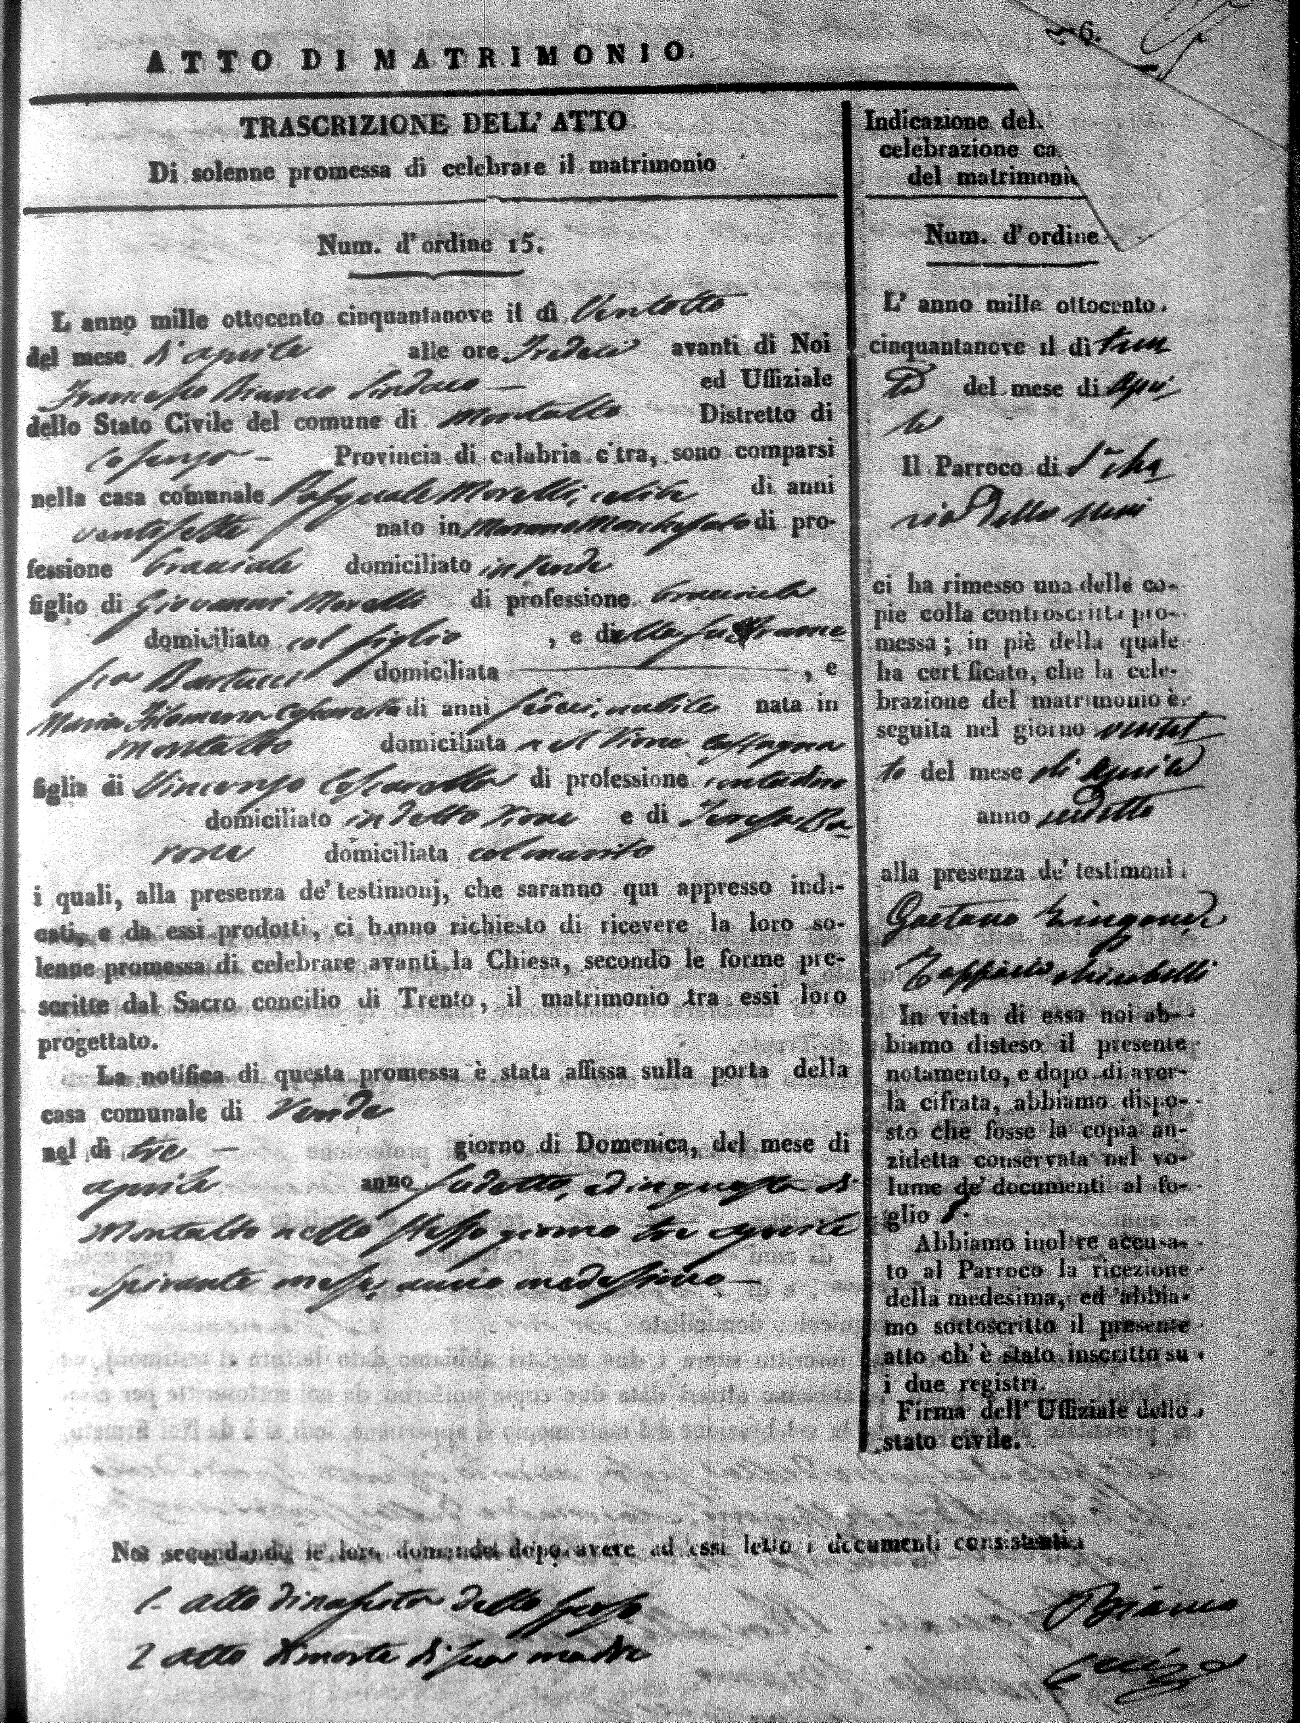 6.
ATTO DI MATRIMONIO.
TRASCRIZIONE DELL' ATTO
Di solenne promessa di celebrare il matrimonio
Num. d'ordine 15.
L anno mille ottocento cinquantanove il dì Ventotto
del mese d'aprile alle ore Tredeci avanti di Noi
Francesco Bianco Sindaco — ed Uffiziale
dello Stato Civile del comune di Montalto Distretto di
Cosenza — Provincia di calabria citra, sono comparsi
nella casa comunale Pasquale Morelli, celibe di anni
ventisette nato in Marano Marchesato di pro-
fessione bracciale domiciliato in Rende
figlio di Giovanni Morelli di professione bracciale
domiciliato col figlio , e di della fu France
sca Bartucci domiciliata , e
Maria Filomena di anni sedeci, nubile nata in
Montalto domiciliata nel Rione
figlia di Vincenzo di professione contadino
domiciliato in detto Rione e di Teresa Ba
rone domiciliata col marito
i quali, alla presenza de' testimonj, che saranno qui appresso indi-
cati, e da essi prodotti, ci hanno richiesto di ricevere la loro so-
lenne promessa di celebrare avanti la Chiesa, secondo le forme pre-
scritte dal Sacro concilio di Trento, il matrimonio tra essi loro
progettato.
La notifica di questa promessa è stata affissa sulla porta della
casa comunale di Rende
nel dì tre — giorno di Domenica, del mese di
aprile anno sudetto, ed in questa di
Montalto nello stesso giorno tre aprile
spirante mese, anno medesimo —
Indicazione del.
celebrazione ca.
del matrimoni
Num. d'ordine
L' anno mille ottocento
cinquantanove il dì tren
ta del mese di Apri
le
Il Parroco di
della
ci ha rimesso una delle co-
pie colla controscritta pro-
messa; in piè della quale
ha certificato, che la cele-
brazione del matrimonio è
seguita nel giorno ventot
to del mese di Aprile
anno sudetto
alla presenza de' testimoni
Gaetano
Mirabelli
In vista di essa noi ab-
biamo disteso il presente
notamento, e dopo di aver-
la cifrata, abbiamo dispo-
sto che fosse la copia an-
zidetta conservata nel vo-
lume de' documenti al fo-
glio 8.
Abbiamo inoltre accusa-
to al Parroco la ricezione
della medesima, ed abbia-
mo sottoscritto il presente
atto ch'è stato inscritto su
i due registri.
Firma dell' Uffiziale dello
stato civile.
Noi secondando le loro domande dopo avere ad essi letto i documenti consistenti
1. atto di nascita dello sposo
2 atto di morte di sua madre
Bianco